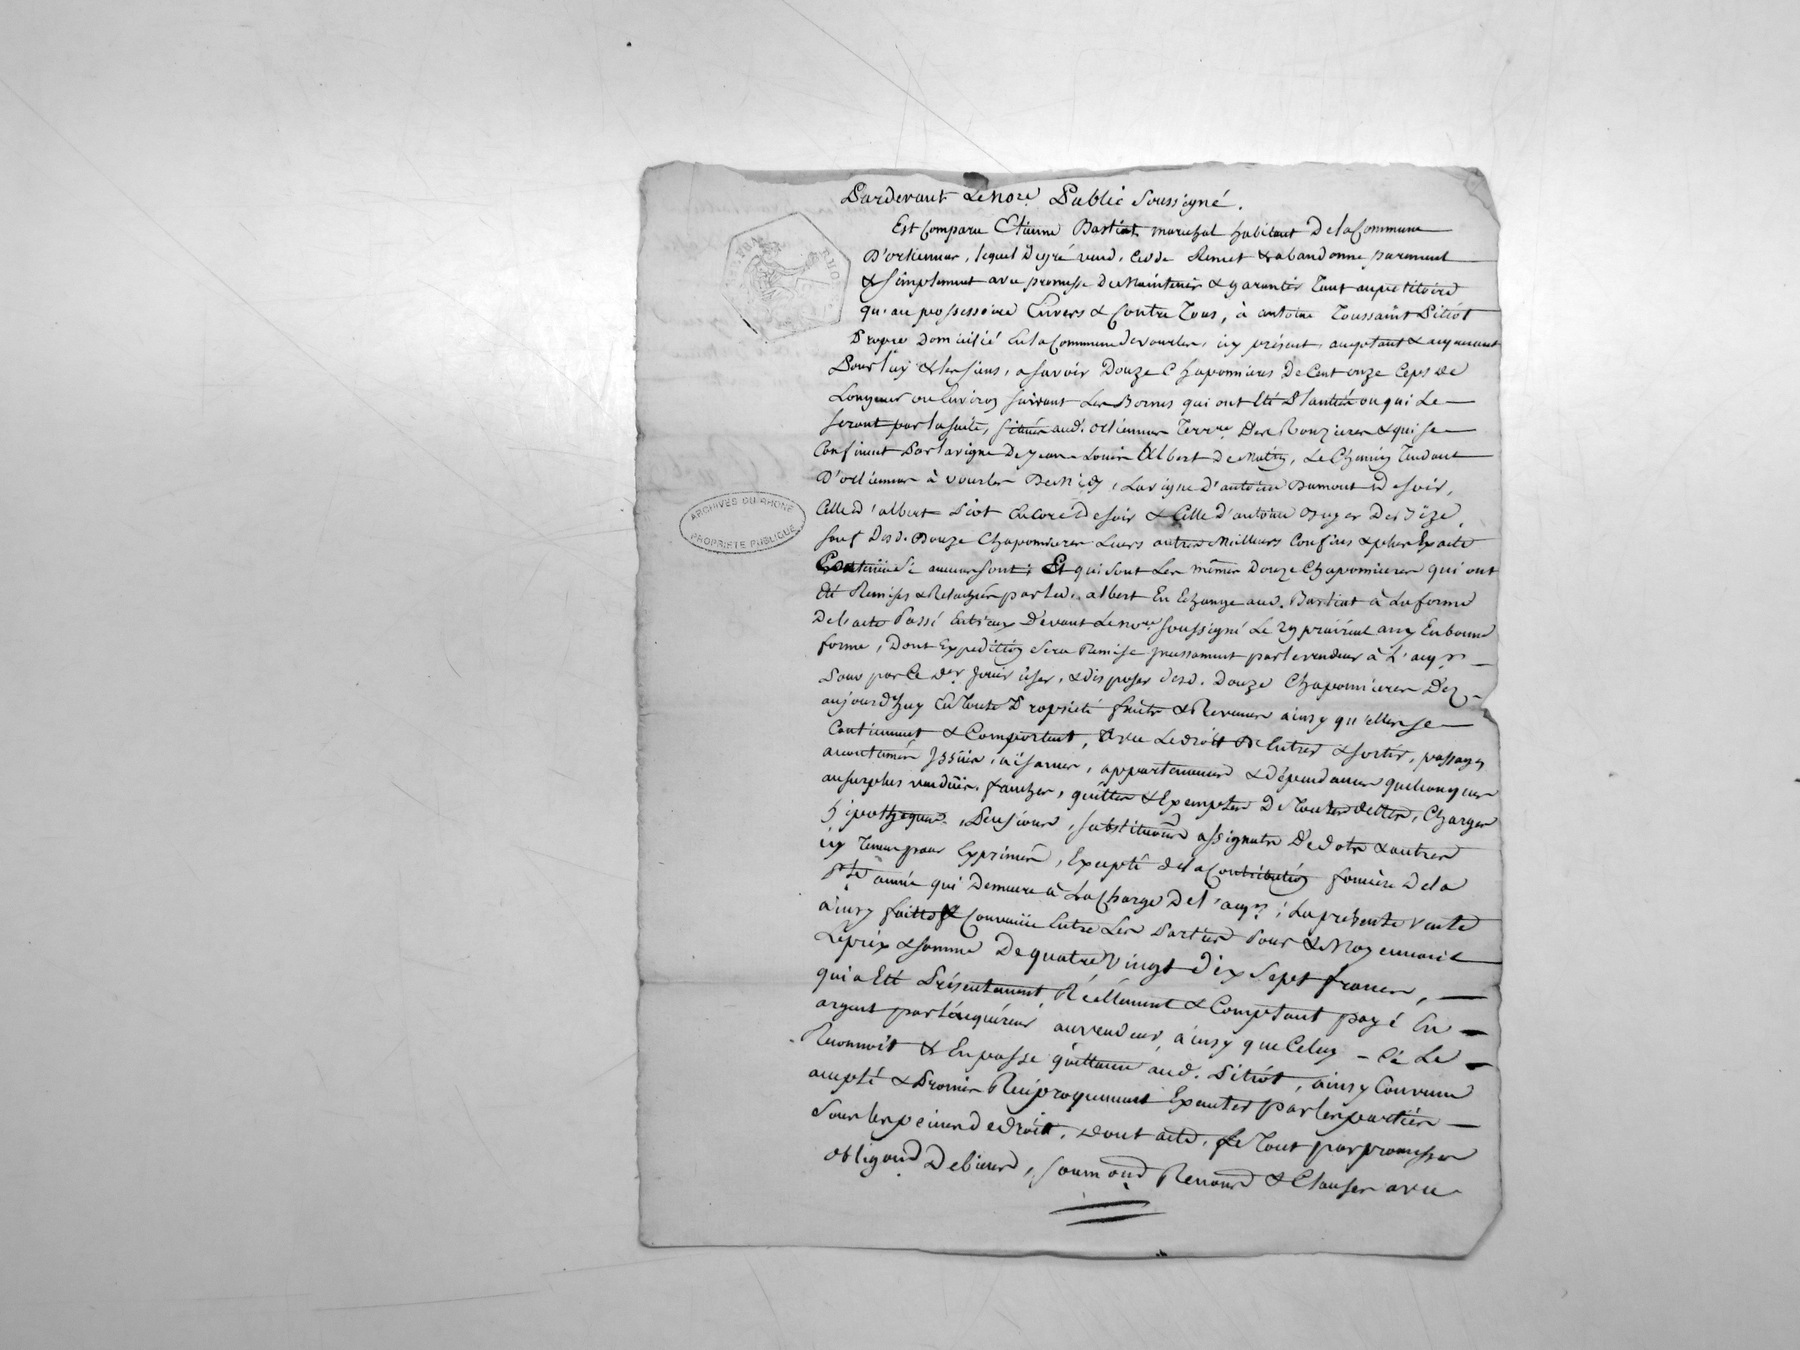 Pardevant Le No.re Public Soussigné.
Est Comparu Etienne Bastiat marechal habitant De la Commune
D'orliennas, lequel De gré vend, Cede Remet & abandonne purement
& simplement avec promesse De Maintenir & garantir Tant au petitoire
qu'au possessoire Envers & Contre Tous, à antoine Toussaint Pitiot
Propre Domicilié En la Commune de vourles, icy présent, acceptant & acquerant
Pour luy & les siens, a savoir Douze Chaponnieres De Cent onze Ceps de
Longueur ou Environ suivant Les Bornes qui ont Eté Plantées ou qui Le
seront par la suite, situées aud. orliennas Terr.re Des Ronzieres & qui se
Confinent Par la vigne De jean Louis Albert De Matin, Le Chemin Tendant
D'orliennas à vourles De Midy, La vigne d'antoine Dumont De soir,
Celle d'albert Encore De soir & Celle d'antoine De Bize,
sauf Desd. Douze Chaponnieres Leurs autres Meilleurs Confins & plus Exacte
Contenue Si aucuns sont; Et qui sont Les mêmes Douze Chaponnieres qui ont
été Remises & Relachées par led. albert En Echange aud. Bastiat à La forme
De l'acte Passé Entr'eux Devant Le no.re soussigné Le 29 prairial an En bonne
forme, Dont Expedition Sera Remise par le vendeur à L'acq.r
Pour par Ce der. jouir user, & disposer desd. Douze Chaponnieres Dez
aujourd'huy En Toute Propriété fruits & Revenus ainsy qu'elles se
Contiennent & Comportent, Avec Le droit De Entrer & sortir, passages
accoutumés Issües, aisances, appartenances & dépendances quelconques
au surplus vendües, franches, quittes & Exemptes De Toutes dettes, Charges
hipotheques, Pensions, substitutions assignats De dots & autres
icy Tenus pour Exprimés, Excepté de la Contribution fonciere De la
p.te année qui Demeure à La Charge De l'acq.r; La presente vente
ainsy faitte & Convenüe Entre Les Parties Pour & Moyennant
Le prix & somme De quatre Vingt Dix Sept francs,
qui a Eté Présentement Réellement & Comptant payé En
argent par l'acquéreur au vendeur, ainsy que Celuy-Cé Le
Reconnoit & En passe quittance aud. Pitiot, ainsy Convenu
accepté & Promis Reciproquement Executer par les parties
Sous les peines de droit, dont acte, Le Tout par promesses
obligaons De biens, soumaons Renons & Clauses avec
ARCHIVES DU RHÔNE
PROPRIETE PUBLIQUE